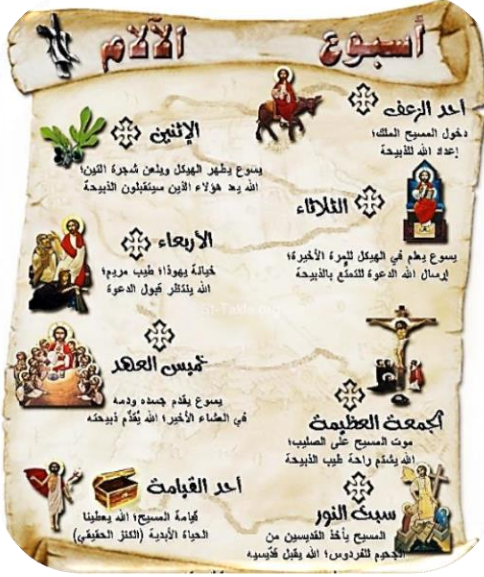 أسبوع الآلام
أحد الزعف
دخول المسيح الملك؛
إعداد الله للذبيحة
الإثنين
يسوع يطهر الهيكل ويلعن شجرة التين؛
الله يعد هؤلاء الذين سيتقبلون الذبيحة
الثلاثاء
يسوع يعلم في الهيكل للمرة الأخيرة؛
إرسال الله الدعوة للتمتُّع بالذبيحة
الأربعاء
خيانة يهوذا؛ طيب مريم؛
الله ينتظر قبول الدعوة
St-Takla.org
خميس العهد
يسوع يقدم جسده ودمه
في العشاء الأخير؛ الله يُقدِّم ذبيحته
الجمعة العظيمة
موت المسيح على الصليب؛
الله يشتم راحة طيب الذبيحة
سبت النور
المسيح يأخذ القديسين من
الجحيم للفردوس؛ الله يقبل قدّيسيه
أحد القيامة
قيامة المسيح؛ الله يعطينا
الحياة الأبدية (الكنز الحقيقي)